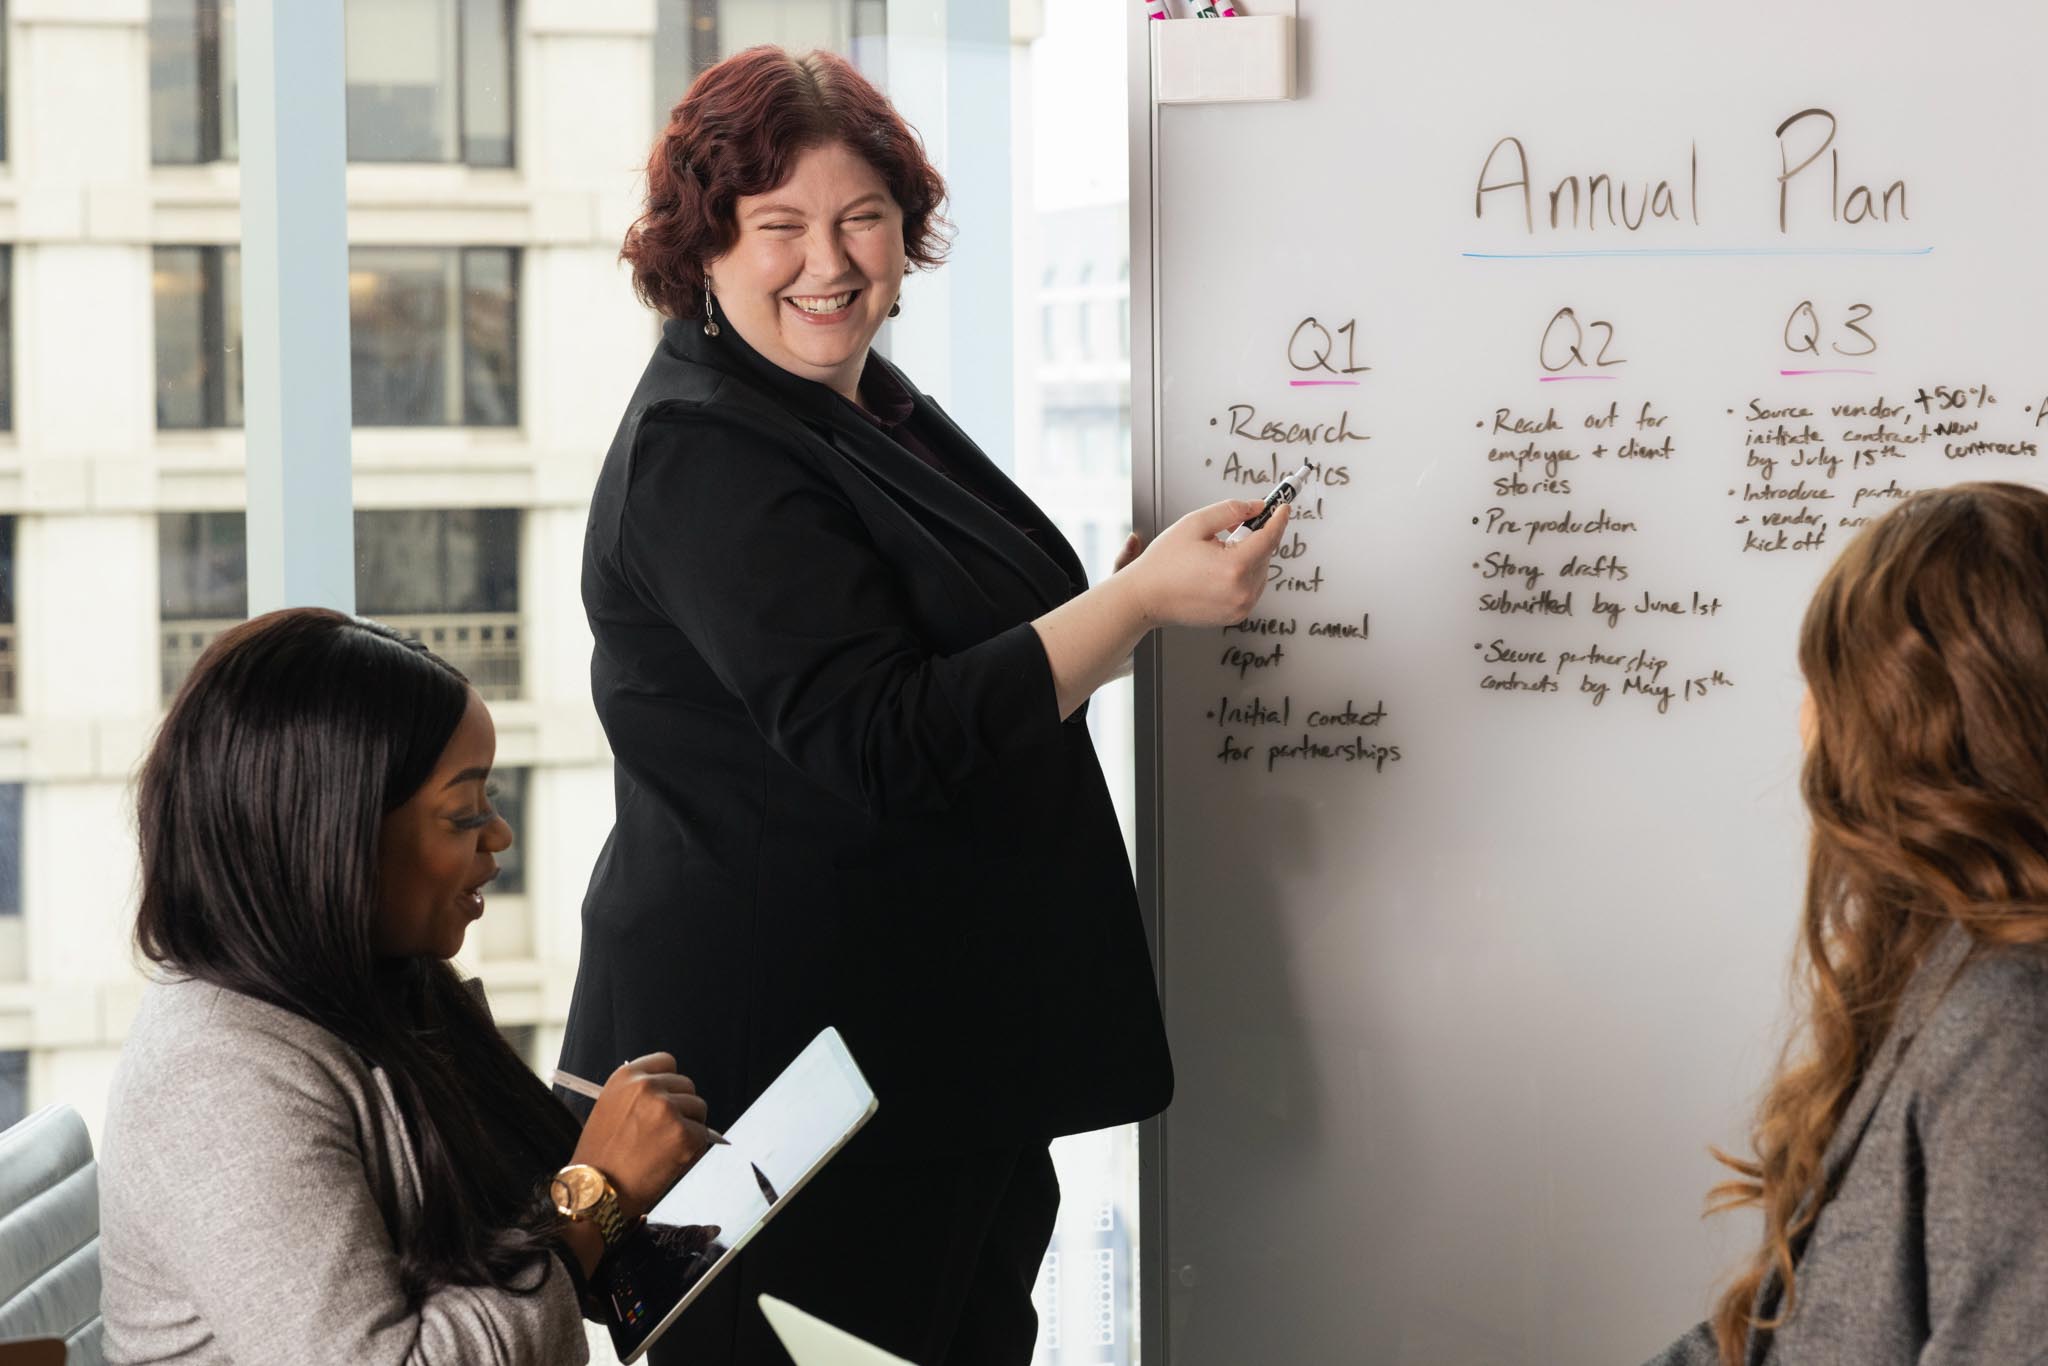 Annual Plan
Q1
• Research
• Analytics
Print
annual
report
• Initial contact
for partnerships
Q2
• Reach out for
employee + client
stories
• Pre-production
• Story drafts
submitted by June 1st
• Secure partnership
contracts by May 15th
Q3
• Source vendor,
initiate contract
by July 15th
+50%
new
contracts
• Introduce
+ vendor,
kick off